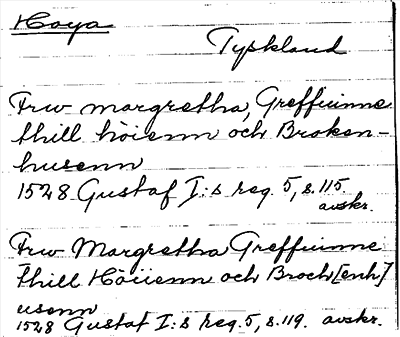 Hoya
Tyskland
Frw margretha, Greffwinne
thill höienn och Broken-
husenn
1528 Gustaf I:s reg. 5, s. 115.
avskr.
Frw Margretha Greffuinne
thill Höüenn och Broch[enh]
usenn
1528 Gustaf I:s reg. 5, s. 119. avskr.